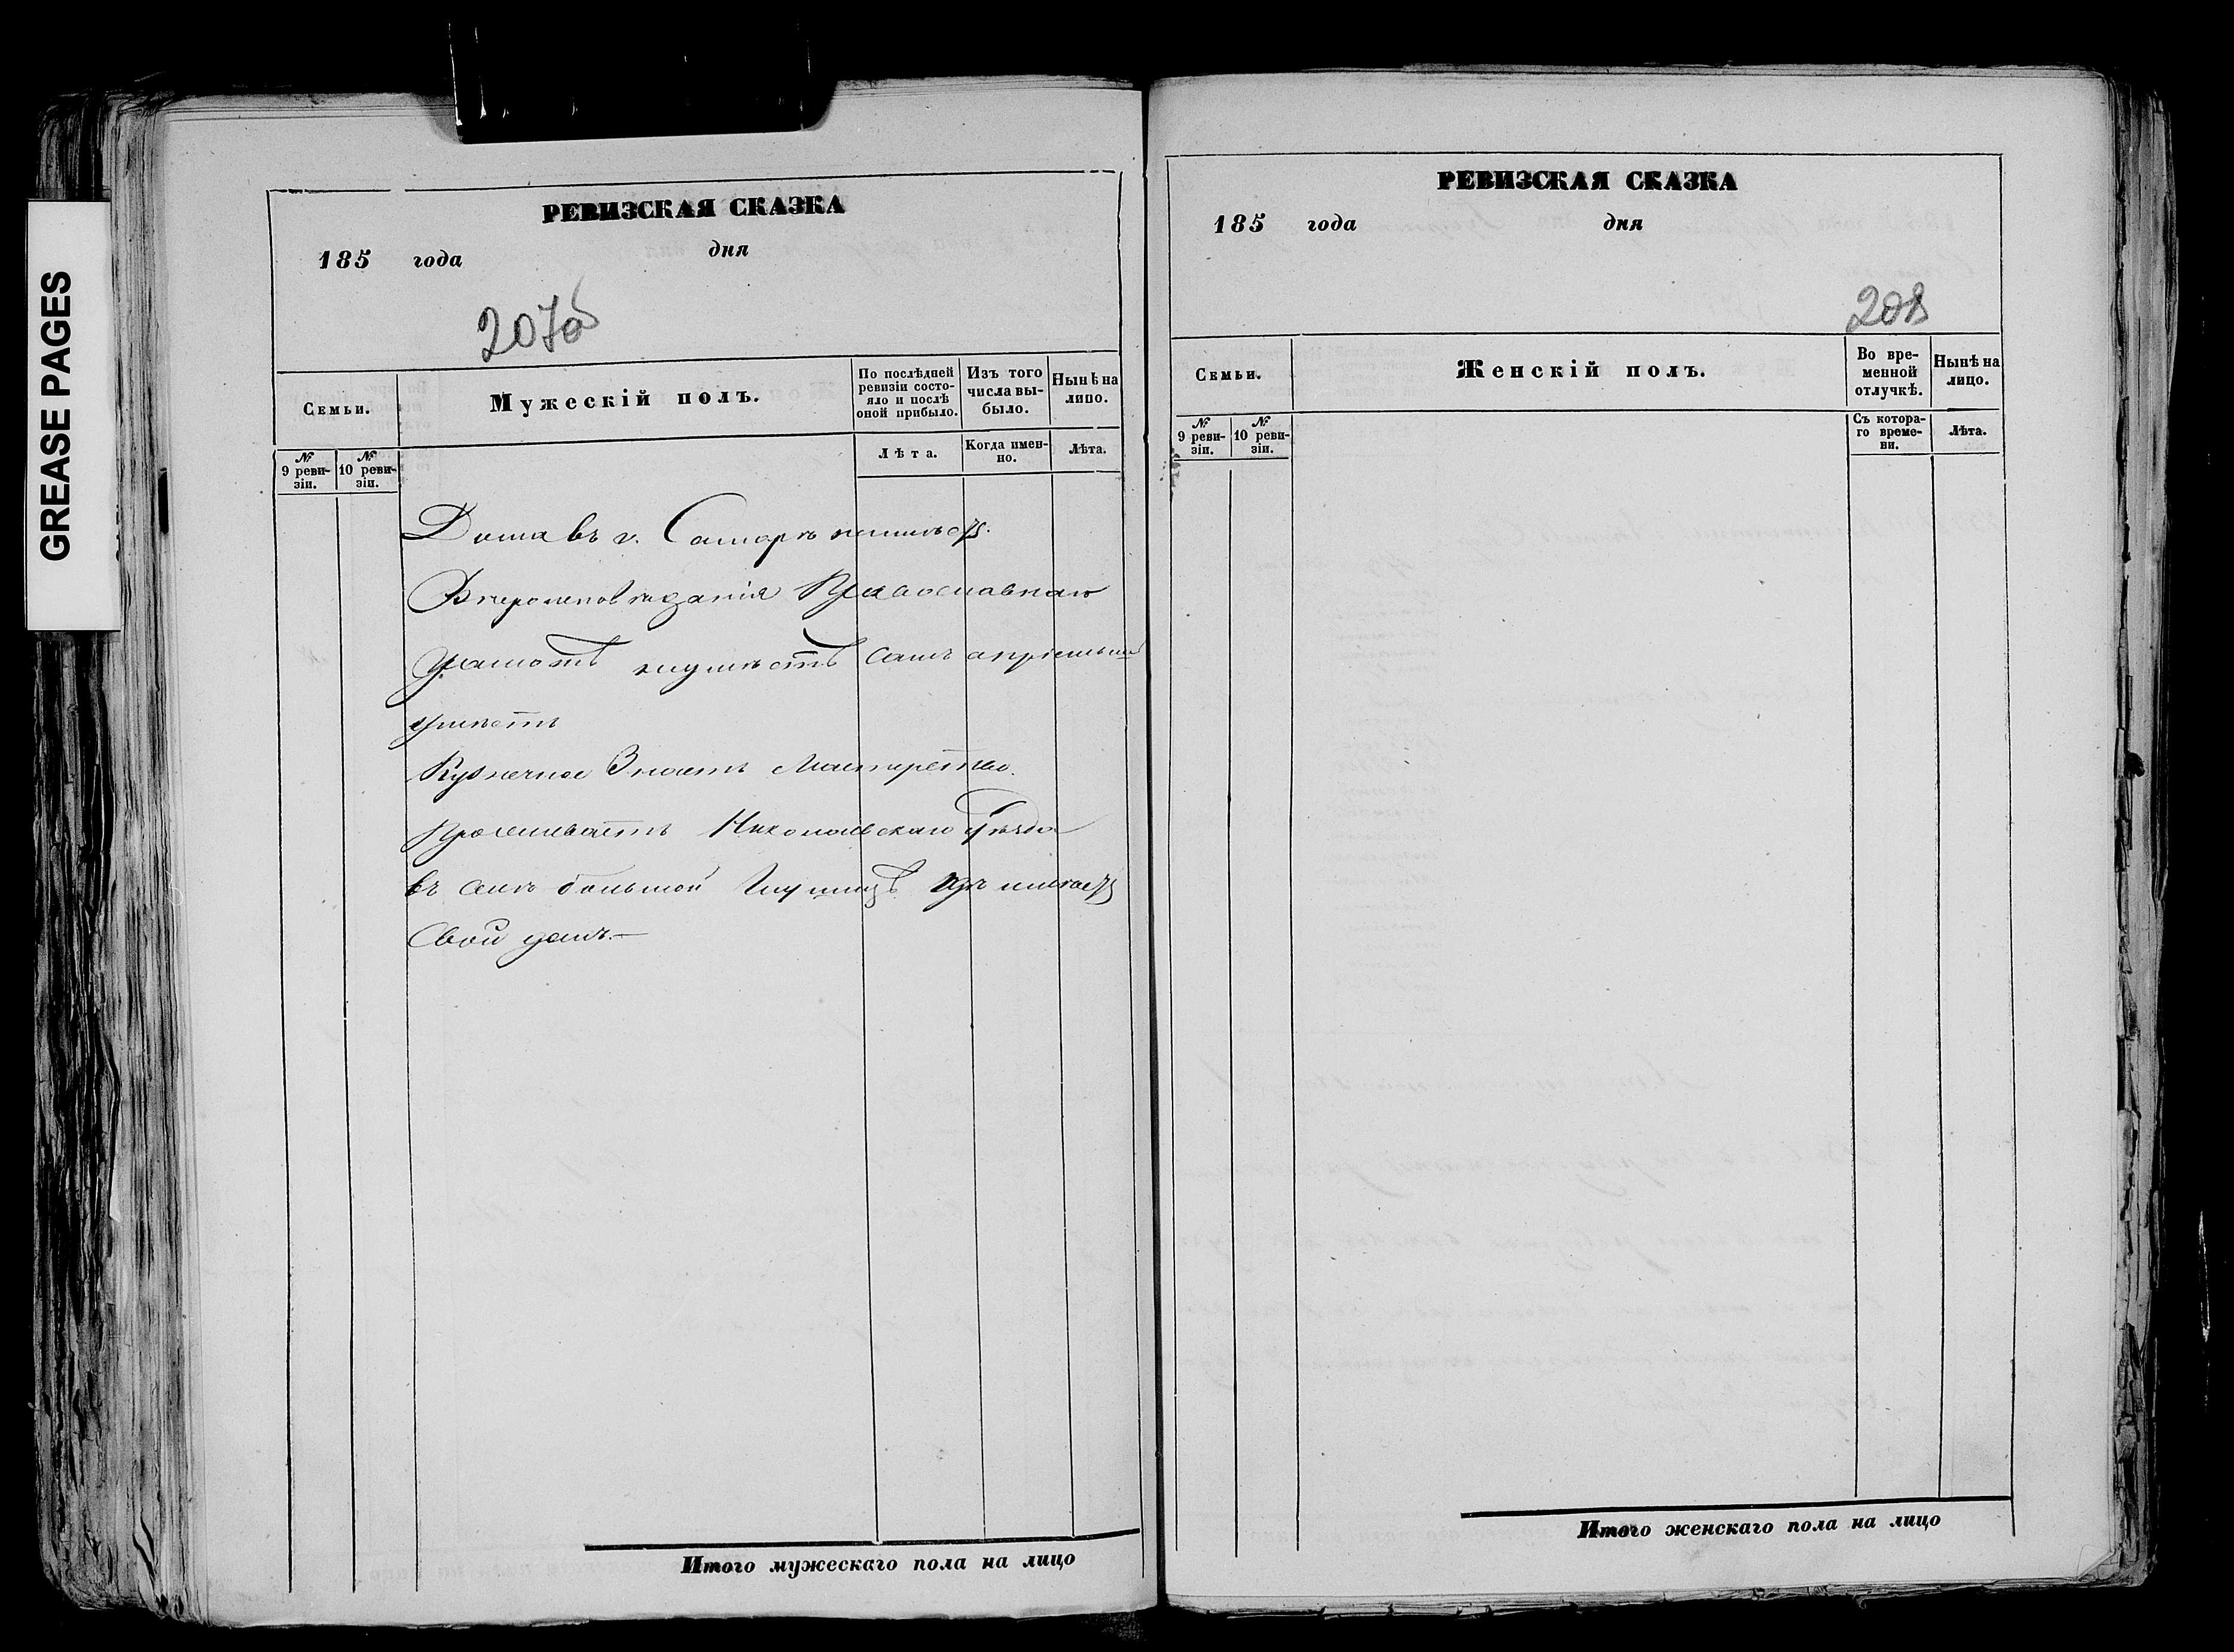 GREASE PAGES
РЕВИЗСКАЯ СКАЗКА
185 года дня
207об
Семьи.
Мужескій полъ.
По послѣдней ревизіи состояло и послѣ оной прибыло.
Изъ того числа выбыло.
Нынѣ на лицо.
№ 9 ревизіи.
№ 10 ревизіи.
Лѣта.
Когда именно.
Лѣта.
Дома въ г. Самарѣ неимѣетъ.
Вѣроисповѣданія Православнаго
Грамотѣ неумѣетъ Самъ
умѣетъ
Кузнечное Знаетъ Мастерство.
Проживаетъ Николаевскаго Уѣзда
въ селѣ большой Глушицѣ гдѣ имѣетъ
Свой домъ.—
Итого мужескаго пола на лицо
РЕВИЗСКАЯ СКАЗКА
185 года дня
208
Семьи.
Женскій полъ.
Во временной отлучкѣ.
Нынѣ на лицо.
№ 9 ревизіи.
№ 10 ревизіи.
Съ котораго времени.
Лѣта.
Итого женскаго пола на лицо